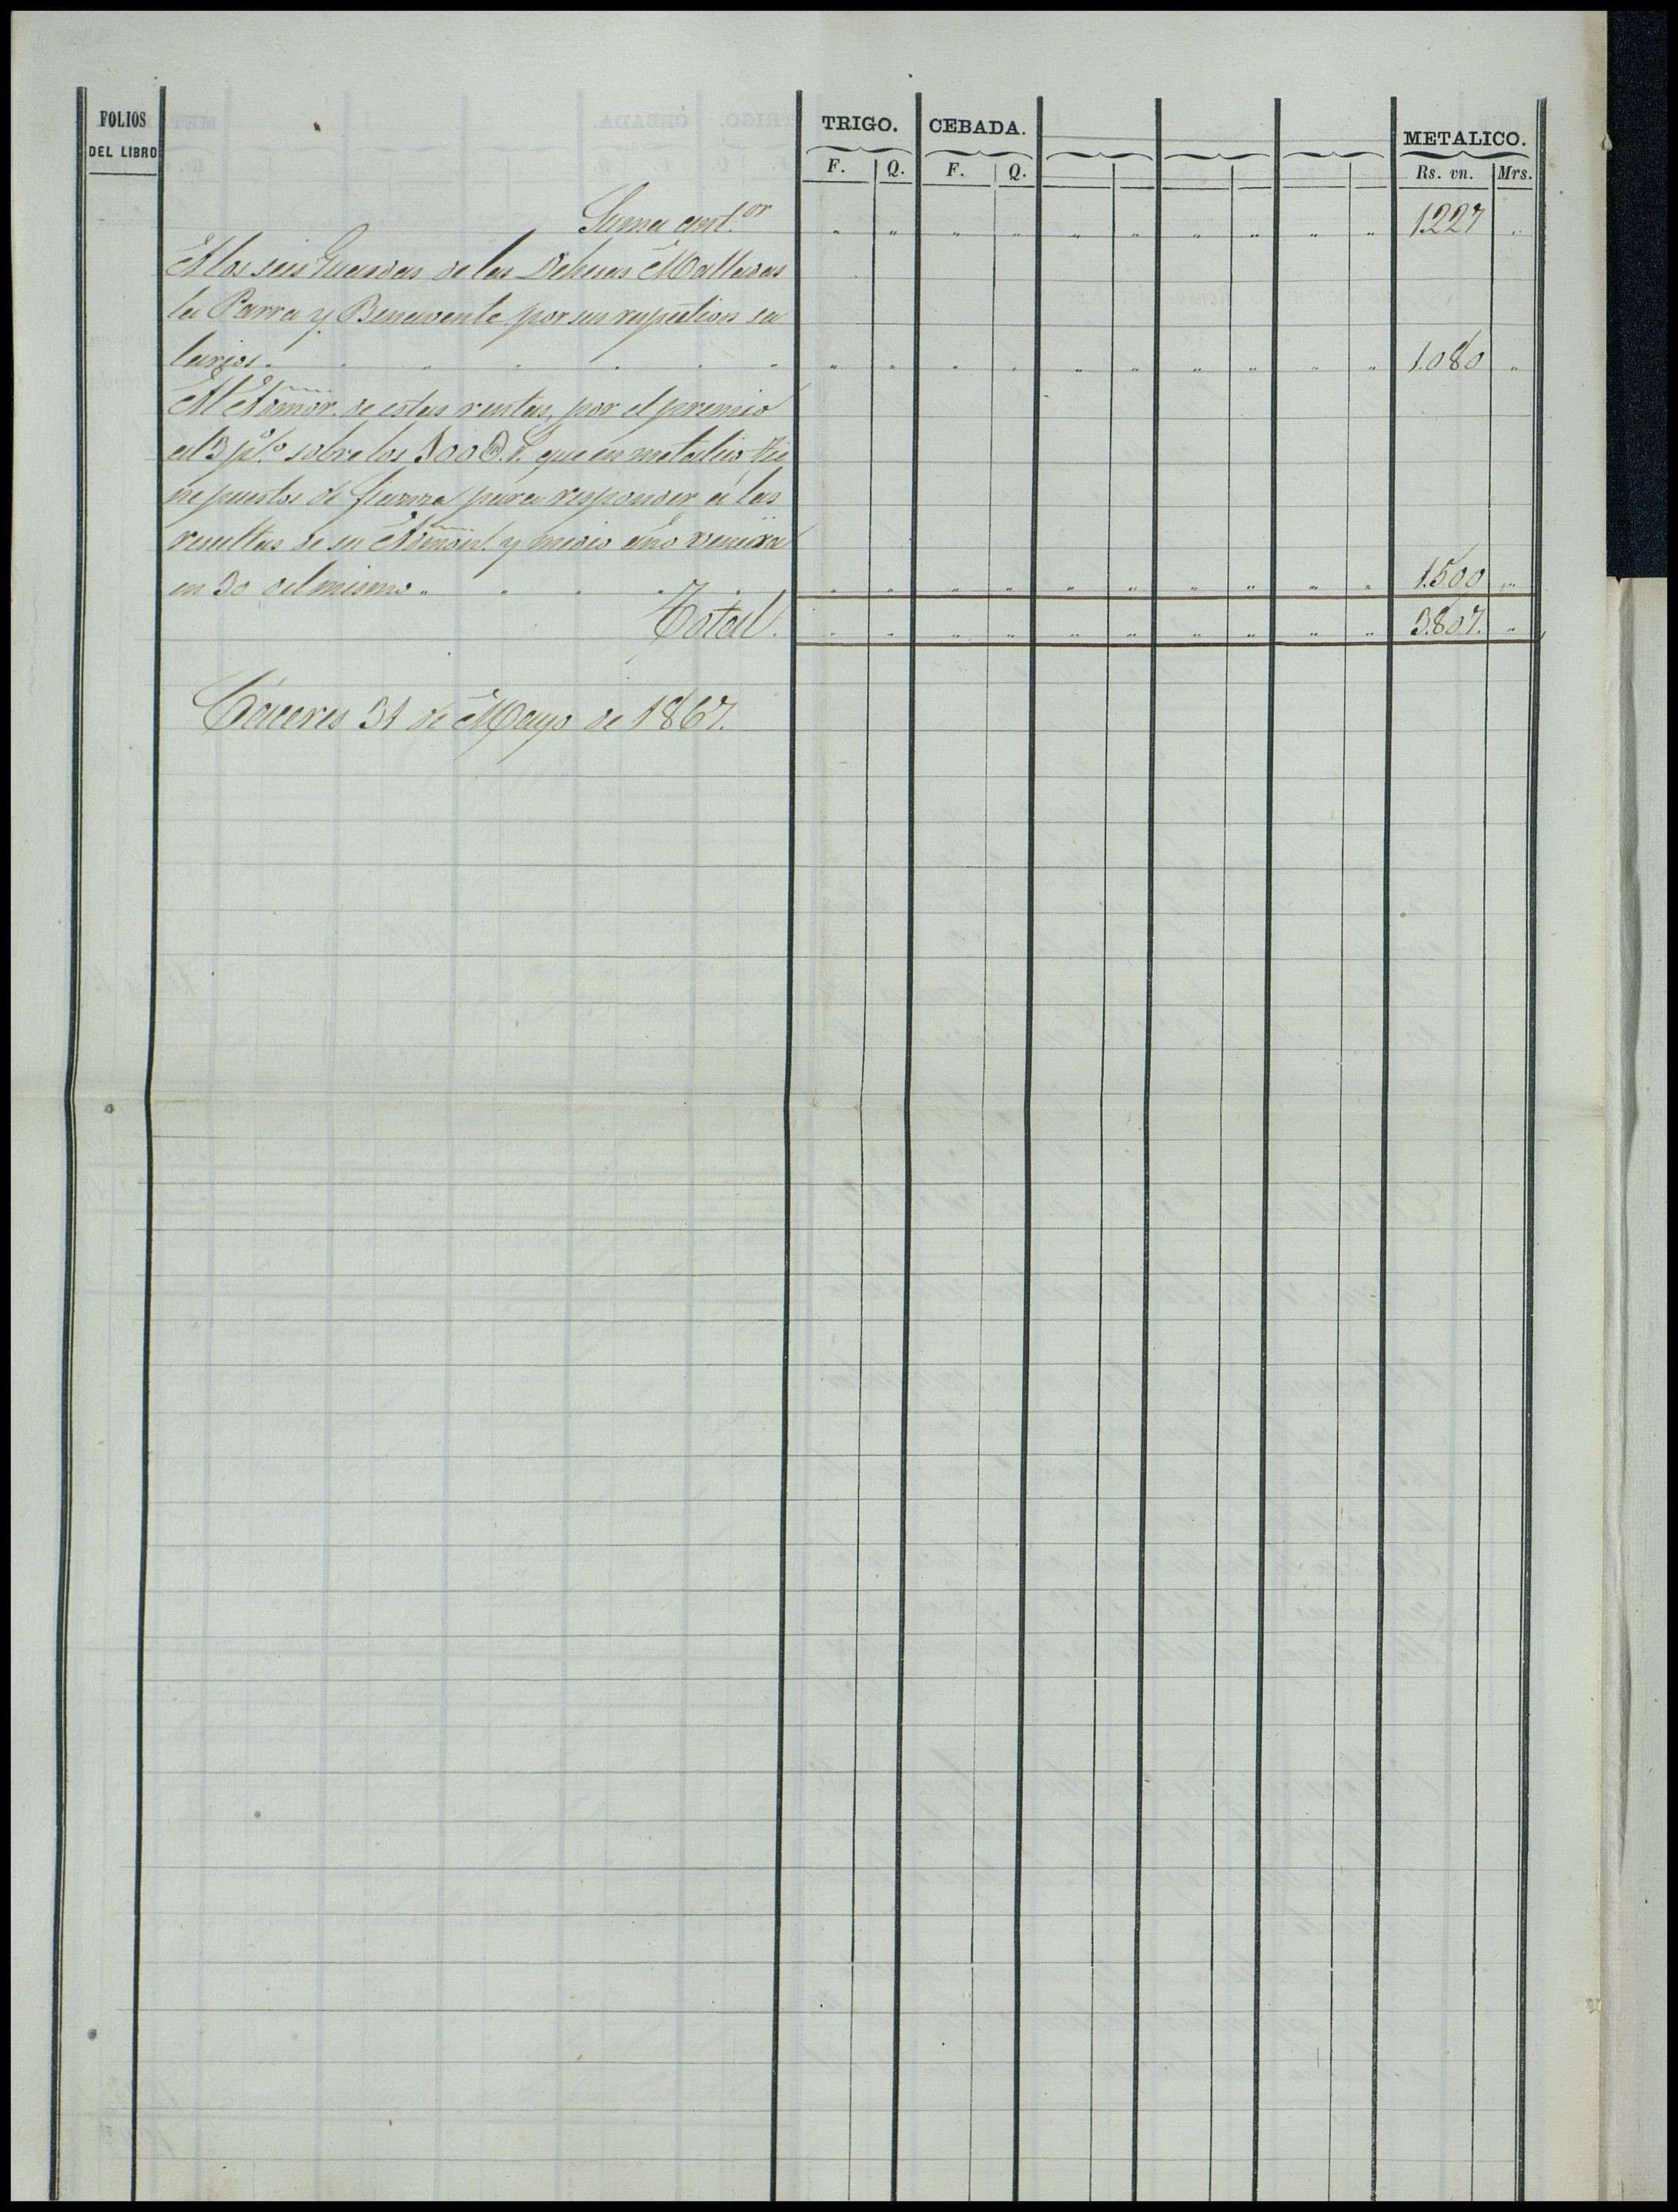 FOLIOS
DEL LIBRO
TRIGO. CEBADA. METALICO.
F. Q. F. Q. Rs. vn. Mrs.
Suma ant.or " " " " " " " " " " 1227 "
A los seis Guardas de las Dehesas Malladas
la Parra y Benavente por sus respectivos sa
larios. " " " " " " " " " " 1.080 "
Al Admor. de estas rentas, por el premio
al 3 p.% sobre los que en metalico tie
ne puestos de fianza para responder á las
resultas de su Admon. y medio año vencerá
en 30 del mismo " " " " " " " " " " 1.500 "
Total. " " " " " " " " " " 3.807. "
Cáceres 31 de Mayo de 1867.